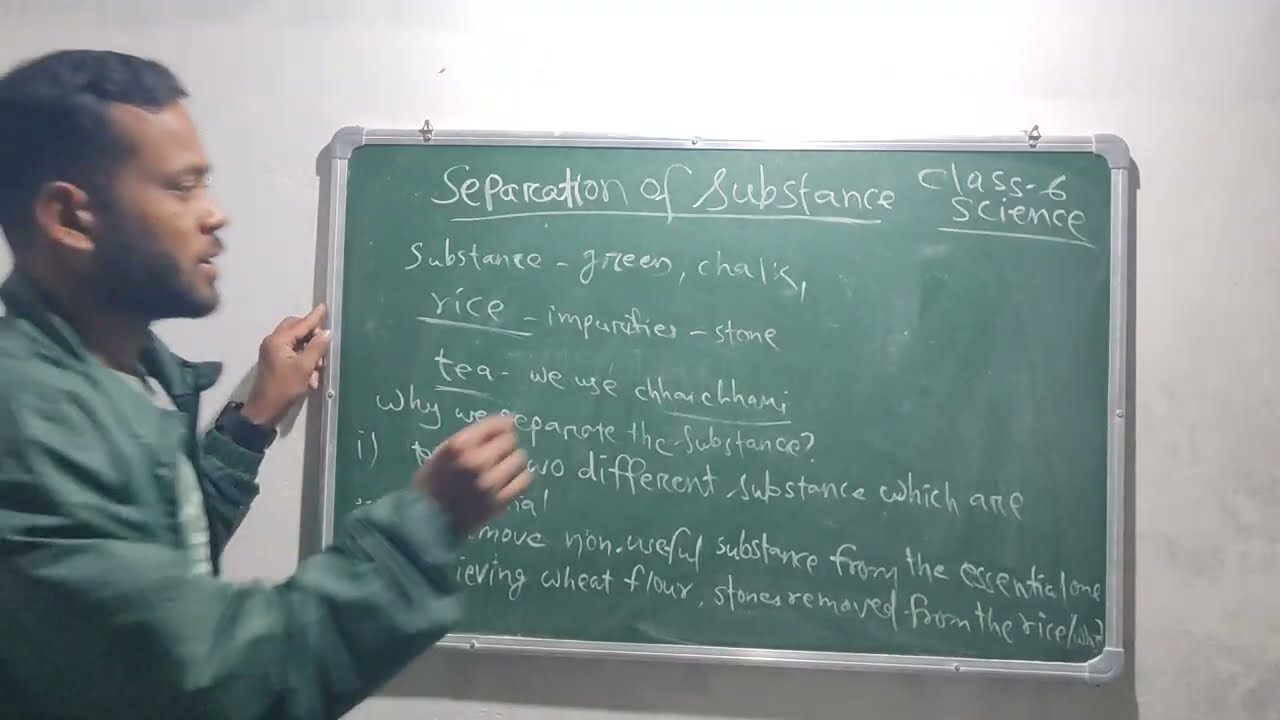 Separation of Substance
Class-6
Science
Substance - green, chalk,
rice - impurities - stone
tea - we use chhaichhani
Why we separate the substance?
i) two different substance which are
move non-useful substance from the essential one
ieving wheat flour, stones removed from the rice/